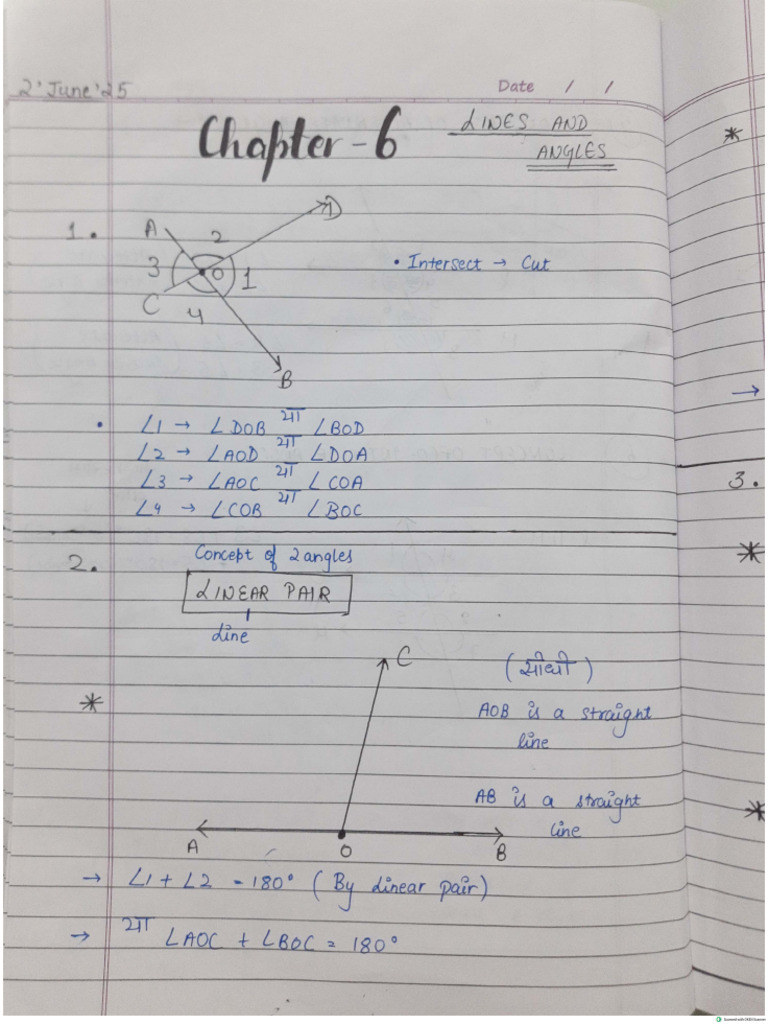 2' June '25
Date / /
Chapter - 6
LINES AND
ANGLES
*
1.
A
D
2
3
O
1
C
4
B
• Intersect → Cut
→
• ∠1 → ∠DOB या ∠BOD
∠2 → ∠AOD या ∠DOA
∠3 → ∠AOC या ∠COA
∠4 → ∠COB या ∠BOC
3.
2.
Concept of 2 angles
LINEAR PAIR
Line
*
C
(सीधी)
*
AOB is a straight
line
AB is a straight
line
*
A
O
B
→ ∠1 + ∠2 = 180° (By Linear pair)
→ या ∠AOC + ∠BOC = 180°